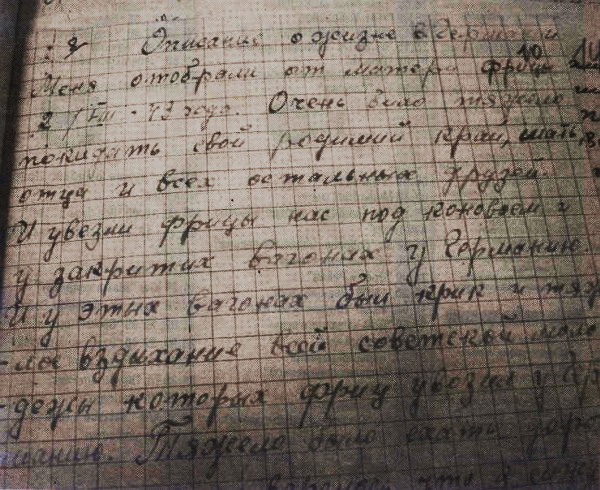 Описание о жизне в Германии
Меня отобрали от матери фрицы
2/VIII - 43 года. Очень было тяжело
покидать свой родимий край, мать
отца и всех остальных друзей.
И увезли фрицы нас под конвоем и
у закритих вагонах у Германию
И у этих вагонах был крик и тяж
-лое вздихание всей советской моло
-дежы которых фриц увозил у Гер
манию. Тяжело было ехать
что я